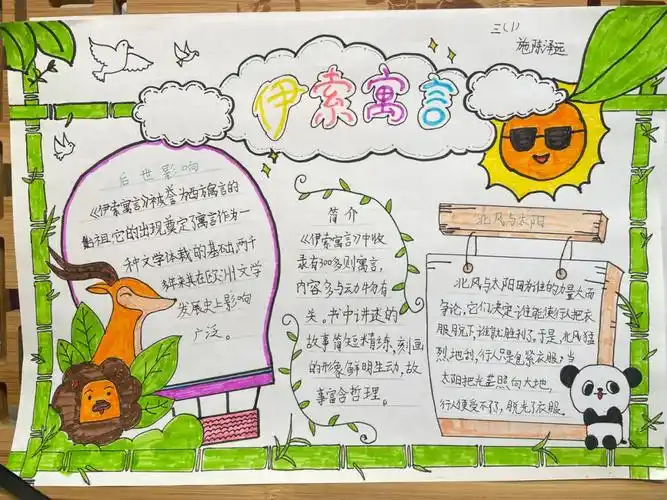 三(1)
施陈泽远
伊索寓言
后世影响
《伊索寓言》被誉为西方寓言的
始祖,它的出现奠定了寓言作为一
种文学体裁的基础,两千
多年来其在欧洲文学
发展史上影响
广泛。
简介
《伊索寓言》中收
录有300多则寓言,
内容多与动物有
关。书中讲述的
故事简短精练,刻画
的形象鲜明生动,故
事富含哲理。
北风与太阳
北风与太阳因为谁的力量大而
争论,它们决定谁能使行人把衣
服脱下,谁就胜利了。于是,北风猛
烈地刮,行人只是紧衣服,当
太阳把光芒照向大地,
行人便受不了,脱光了衣服。